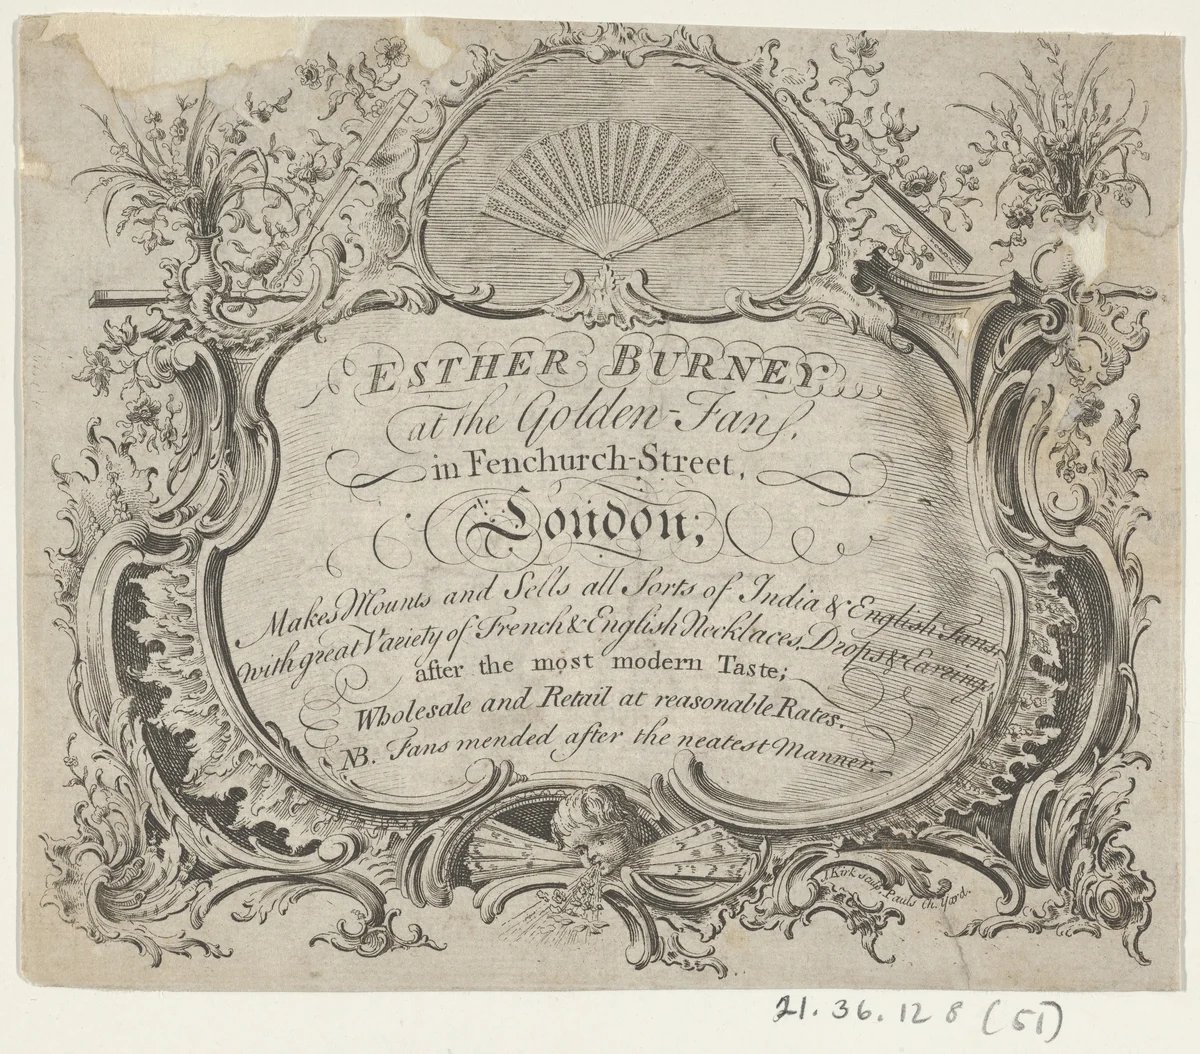 ESTHER BURNEY
at the Golden-Fans,
in Fenchurch-Street,
London;
Makes Mounts and Sells all Sorts of India & English Fans,
with great Variety of French & English Necklaces, Drops & Earrings,
after the most modern Taste;
Wholesale and Retail at reasonable Rates.
NB. Fans mended after the neatest Manner.
J Kirk sculp. Pauls Ch. Yard.
21.36.128 (51)